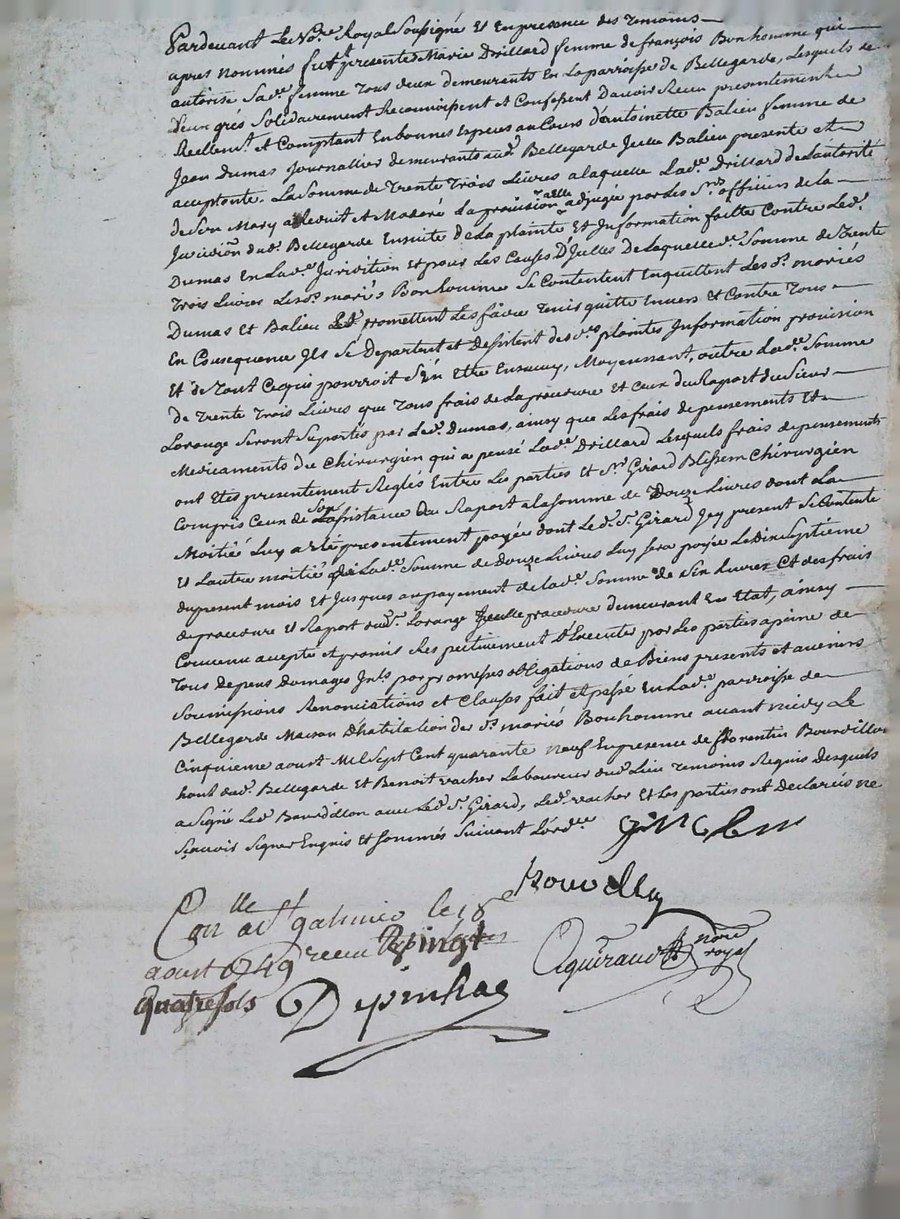 Pardevant Le No.re Royal Soussigné Et Enpresence des temoins
apres nommés fut p.t presente Marie Drillard femme de françois Bonhomme qui
autorise Sad.e femme tous deux demeurants En La parroisse de Bellegarde, Lesquels de
Leur grés Solidairement Reconnoissent et Confessent D'avoir Receu presentement
Reellem.t et Comptant En bonnes Especes au Cours d'antoinette Balieu femme de
Jean Dumas Journallier demeurants aud. Bellegarde Jcelle Balieu presente et
acceptante. La Somme de Trente Trois Livres a laquelle Lad.e Drillard de Lautorité
de Son Mary a Reduit et Moderé La provision a elle adjugée par les S.rs officiers de la
Juridi.on dud. Bellegarde Ensuite de la plainte Et Information faitte Contre Led.
Dumas En Lad.e Juridition Et pour Les Causes D'Jcelles De Laquelle d.e Somme de Trente
Trois Livres Lesd. mariés Bonhomme Se Contentent Enquittent Lesd. mariés
Dumas Et Balieu promettent Les faire tenir quitte Envers et Contre Tous
En Consequence Jls Se Departent et Desistent desd.es plaintes Information provision
Et de Tout Cequi pourroit S'En Etre Ensuivy, Moyennant, outre Lad.e Somme
de Trente Trois Livres que Tous frais de La procedure et Ceux du Raport du Sieur
Lorange Seront Suportés par Led. Dumas, ainsy que Les frais de pensements Et
Medicaments du Chirurgien qui a pensé Lad.e Drillard Lesquels frais de pensements
ont Etés presentement Reglés Entre Les parties et S.r Girard Chirurgien
Compris Ceux de Son assistance du Raport a la Somme de Douze Livres dont La
Moitié Luy a eté presentement payée dont Led. S. Girard Jcy present Se Contente
Et Lautre moitié de Lad.e Somme de Douze Livres Luy Sera payée Le Dix Septieme
du present mois Et Jusques au payement de lad.e Somme de Six Livres Et des frais
de procedure Et Raport dud. S. Lorange Jcelle procedure demeurant En Etat, ainsy
Convenu accepté et promis Respectivement D'Executer par Les parties a peine de
Tous Depens Domages Jnts par promesses obligations de Biens presents et avenirs
Soumissions Renonciations et Clauses fait et passé En Lad.e parroisse de
Bellegarde Maison D'habitation desd. mariés Bonhomme avant midy Le
Cinquieme aoust Mil Sept Cent quarante neuf En presence de florentin Bourdillon
hoste aud. Bellegarde Et Benoit vacher Laboureur dud. Lieu temoins Requis desquels
a Signé Led. Bourdillon avec Led. S. Girard, Led. vacher et Les parties ont declarés ne
Sçavoir Signer Enquis et Sommés Suivant Lord.ce
Bourdillon
Con.lle a S.t galmier le 18
aoust 1749 receu vingt
quatre sols
no.re
royal